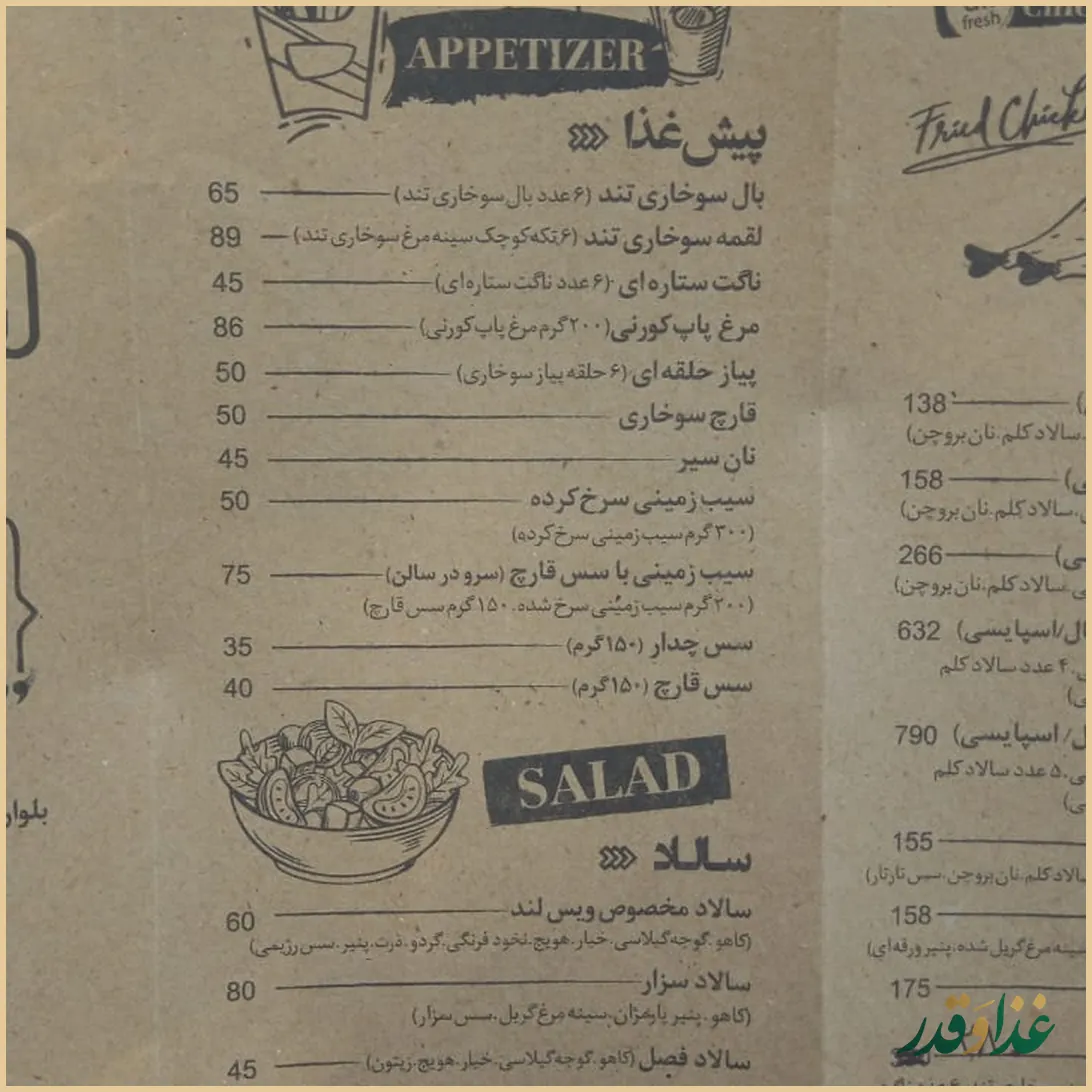 APPETIZER
پیش‌غذا
بال سوخاری تند (۶ عدد بال سوخاری تند) 65
لقمه سوخاری تند (۶ تکه کوچک سینه مرغ سوخاری تند) 89
ناگت ستاره‌ای (۶ عدد ناگت ستاره‌ای) 45
مرغ پاپ‌کورنی (۲۰۰ گرم مرغ پاپ‌کورنی) 86
پیاز حلقه‌ای (۶ حلقه پیاز سوخاری) 50
قارچ سوخاری 50
نان سیر 45
سیب زمینی سرخ کرده 50
(۳۰۰ گرم سیب زمینی سرخ کرده)
سیب زمینی با سس قارچ (سرو در سالن) 75
(۲۰۰ گرم سیب زمینی سرخ شده، ۱۵۰ گرم سس قارچ)
سس چدار (۱۵۰ گرم) 35
سس قارچ (۱۵۰ گرم) 40
SALAD
سالاد
سالاد مخصوص ویس لند 60
(کاهو، گوجه گیلاسی، خیار، هویج، نخود فرنگی، گردو، ذرت، پنیر، سس رژیمی)
سالاد سزار 80
(کاهو، پنیر پارمژان، سینه مرغ گریل، سس سزار)
سالاد فصل (کاهو، گوجه گیلاسی، خیار، هویج، زیتون) 45
fresh
Fried
138
سالاد کلم، نان بروچن)
158
سالاد کلم، نان بروچن)
266
سالاد کلم، نان بروچن)
/اسپایسی) 632
۴ عدد سالاد کلم
/ اسپایسی) 790
۵ عدد سالاد کلم
155
کلم، نان بروچن، سس تارتار)
158
سینه مرغ گریل شده، پنیر ورقه‌ای)
175
غذا و قدر